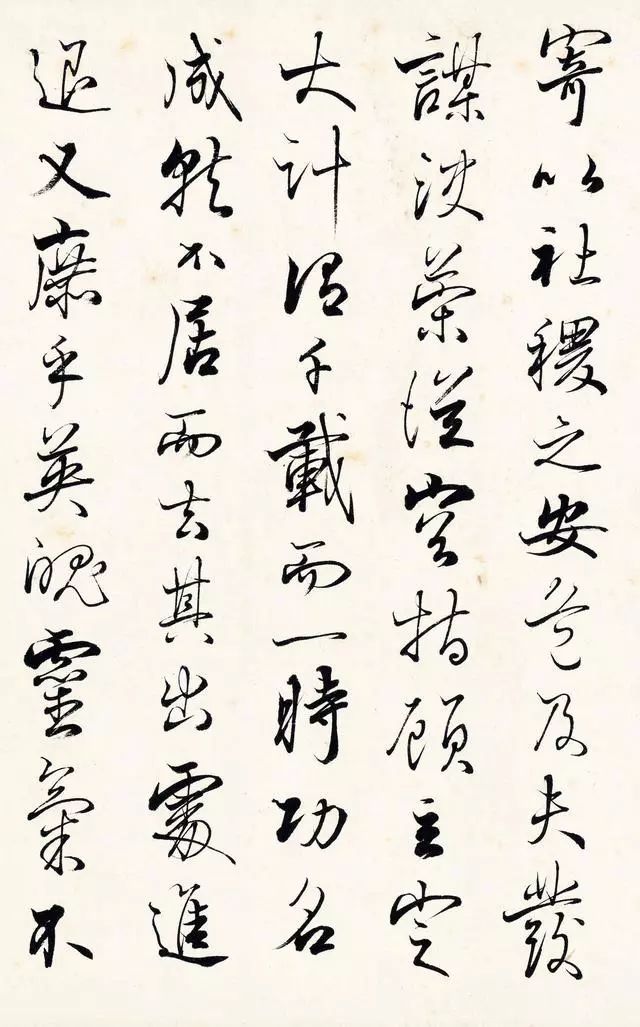 寄以社稷之安危及夫發
謀決策從容指顧立定
大計謂千載而一時功名
成就不居而去其出處進
退又庶乎英魄靈氣不